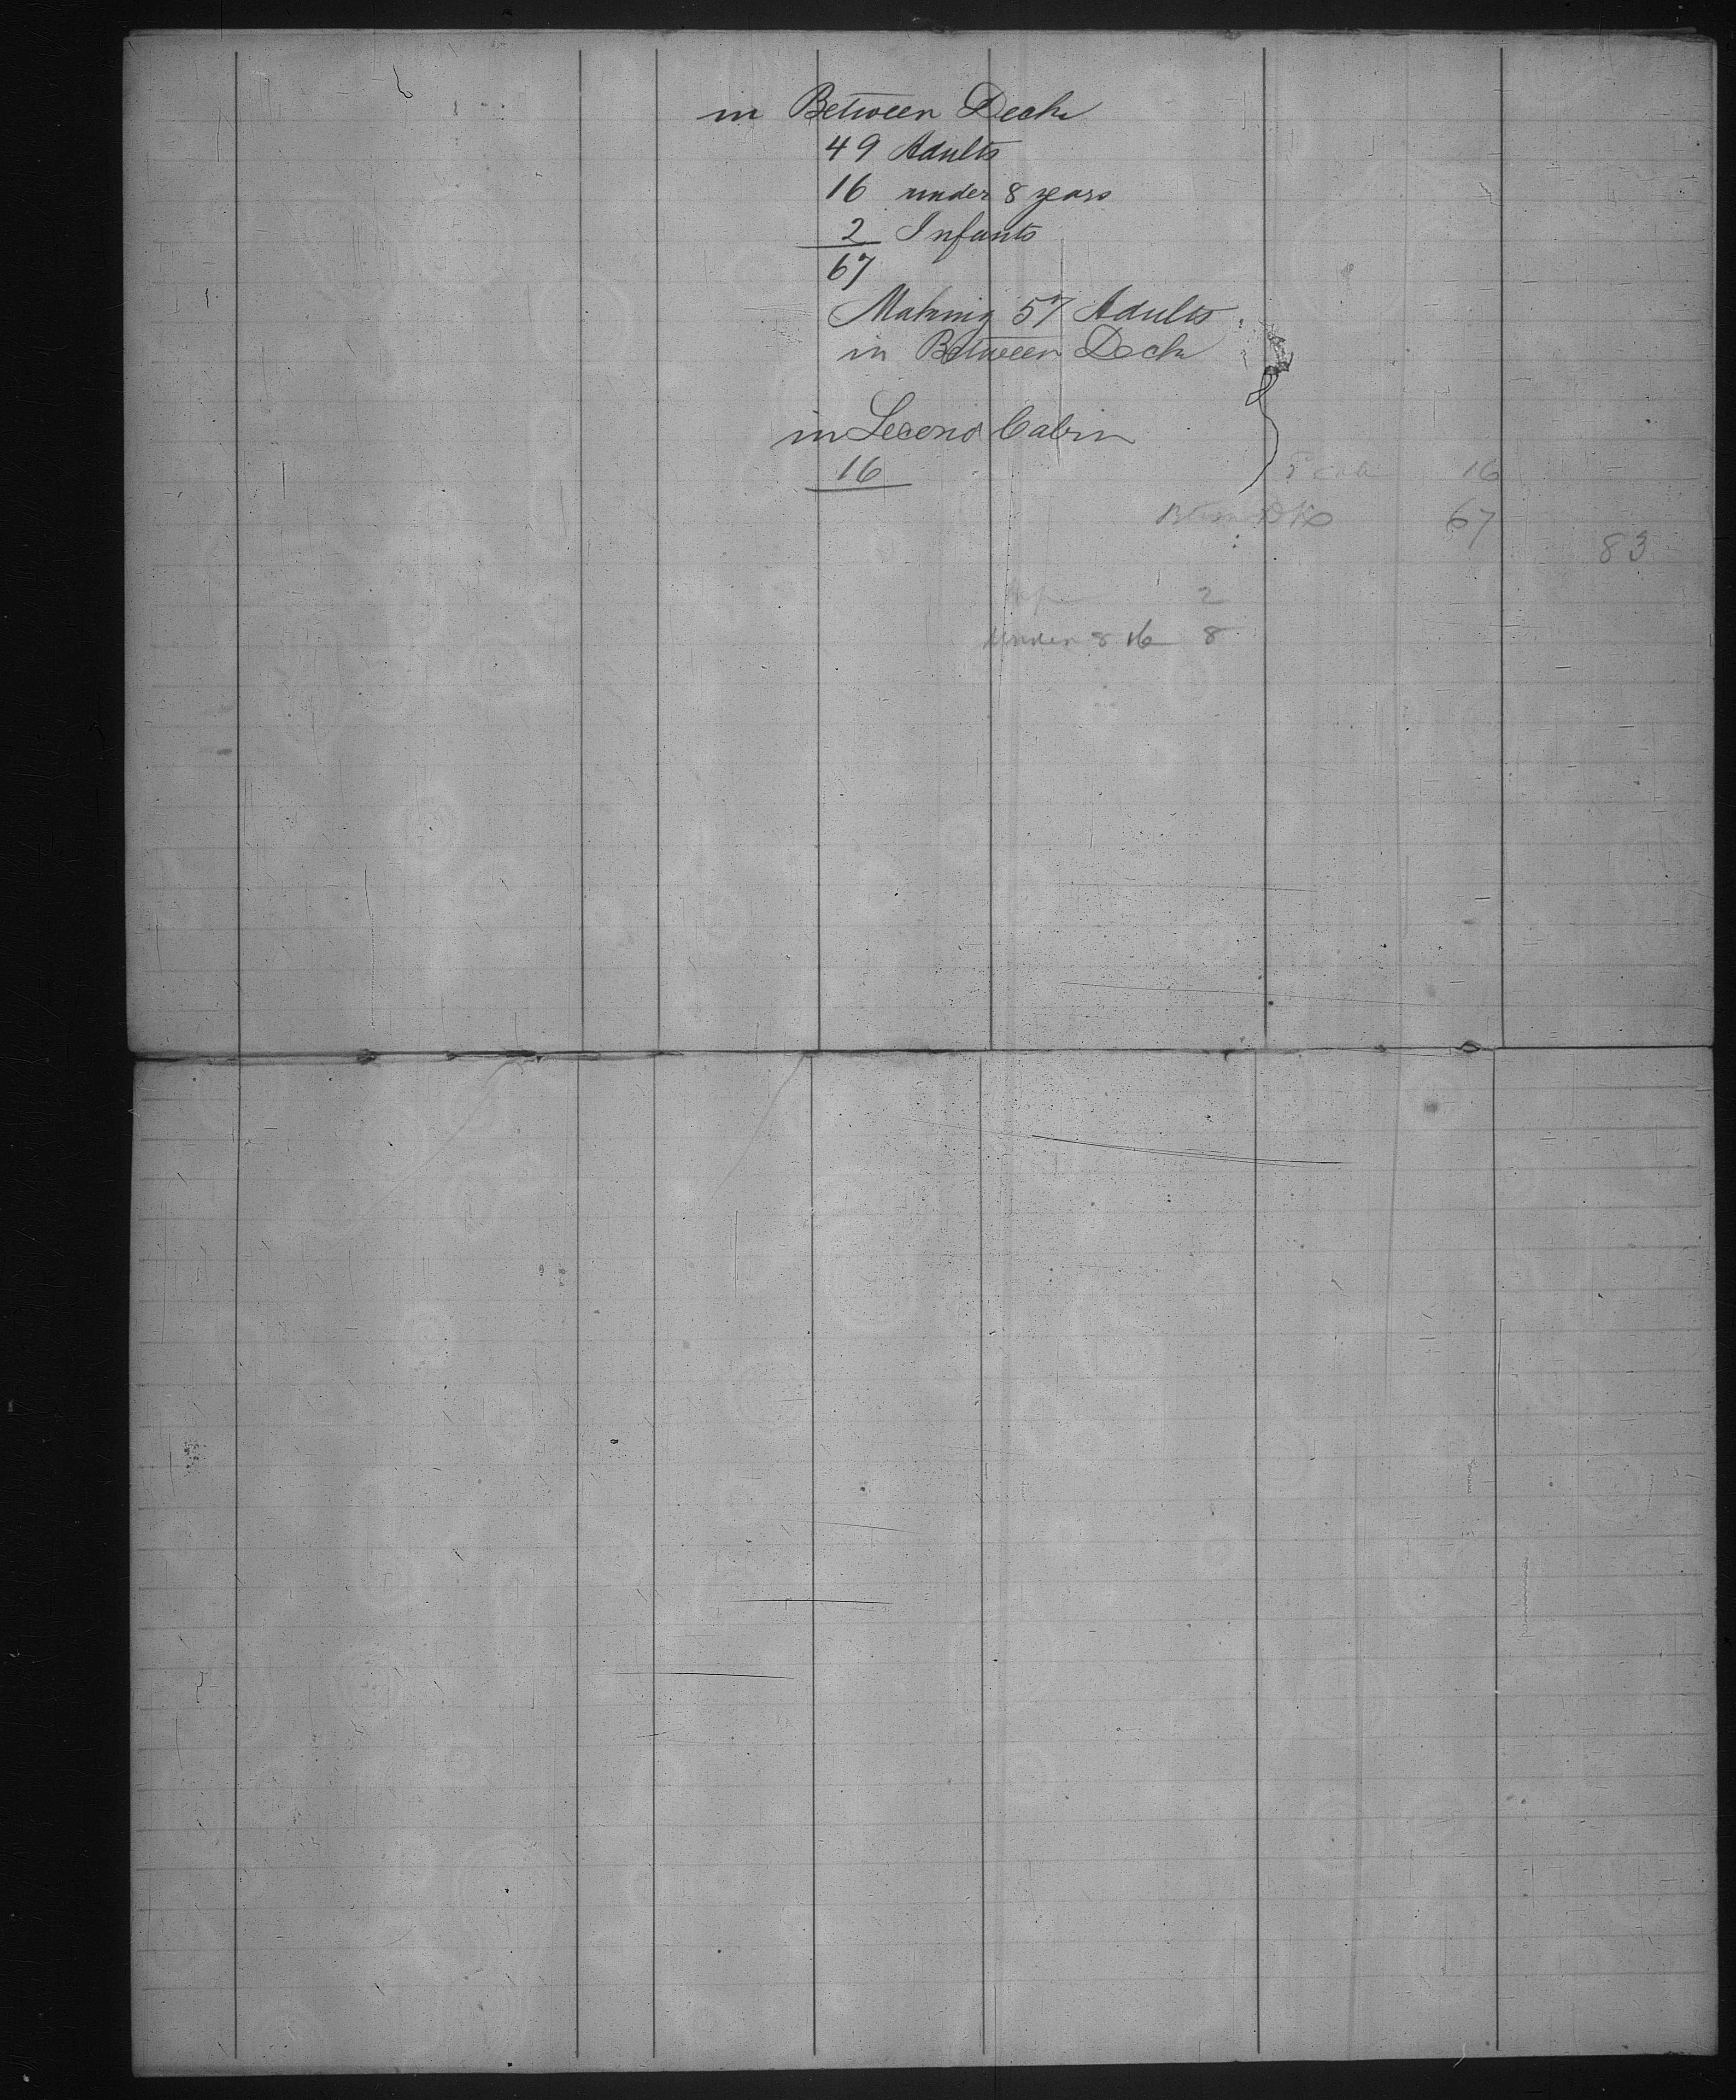 in Between Deck
49 Adults
16 under 8 years
2 Infants
67
Making 57 Adults
in Between Deck
in Second Cabin
16
16
67
83
2
under 8 16 8